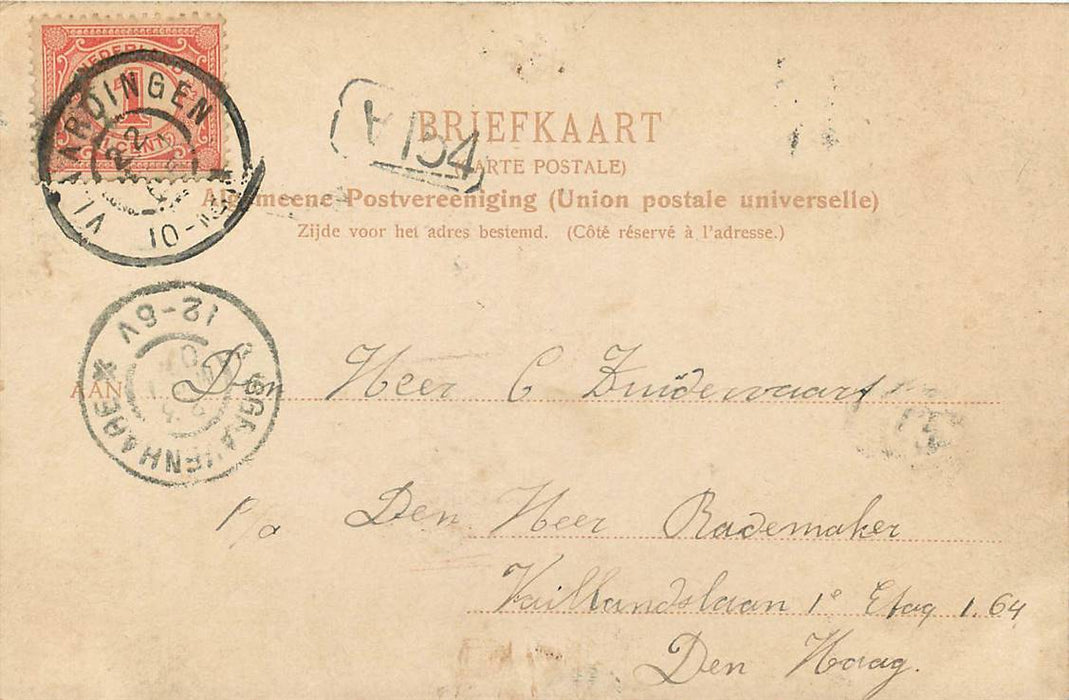 NEDERLAND
1
CENT
VLAARDINGEN
22
10-11V
A 154
BRIEFKAART
(CARTE POSTALE)
Algemeene Postvereeniging (Union postale universelle)
Zijde voor het adres bestemd. (Côté réservé à l'adresse.)
12-8V
'SGRAVENHAGE
AAN Den Heer C Zuidervaart
P/a Den Heer Rademaker
Vaillandslaan 1e Etag 1.64
Den Haag.